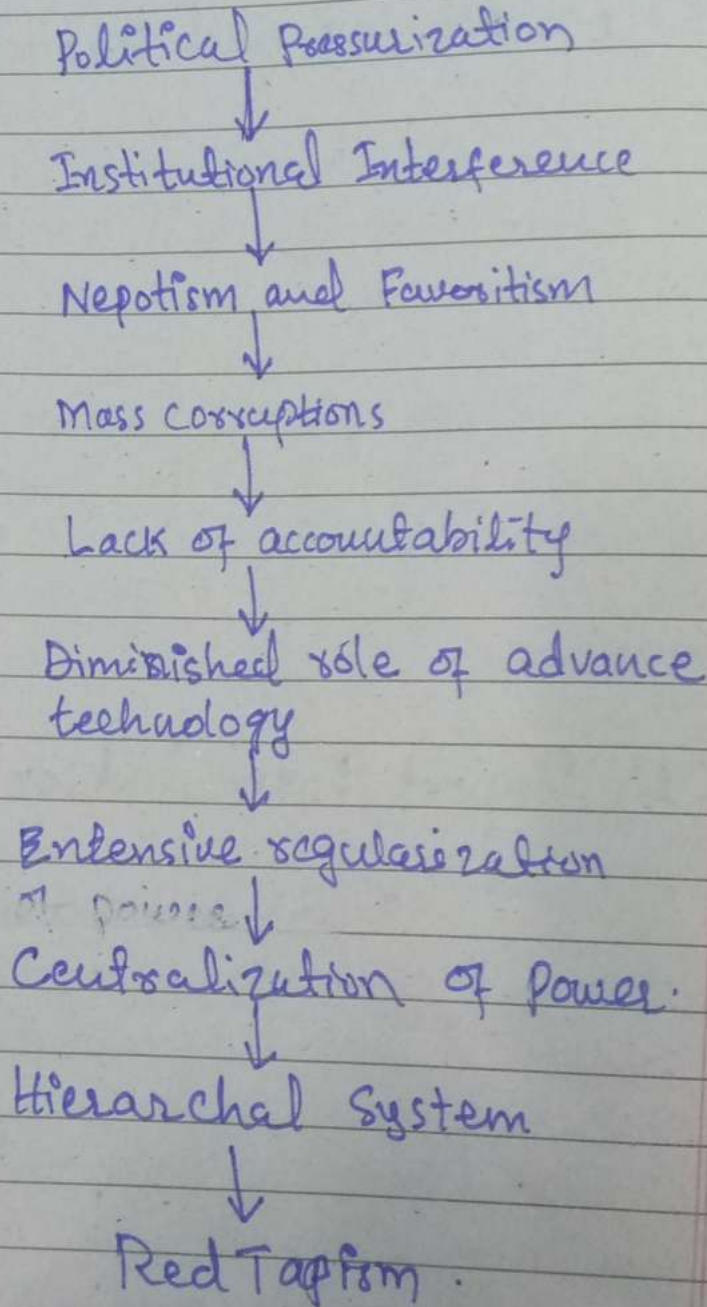 Political Pressurization
Institutional Interference
Nepotism and Favoritism
Mass Corruptions
Lack of accountability
Diminished role of advance
technology
Entensive regularization
of power
Centralization of Power.
Hierarchal System
Red Tapism.